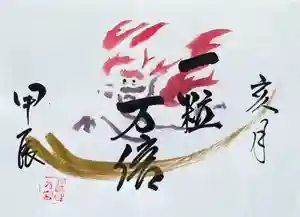 亥月
一粒
万倍
甲辰